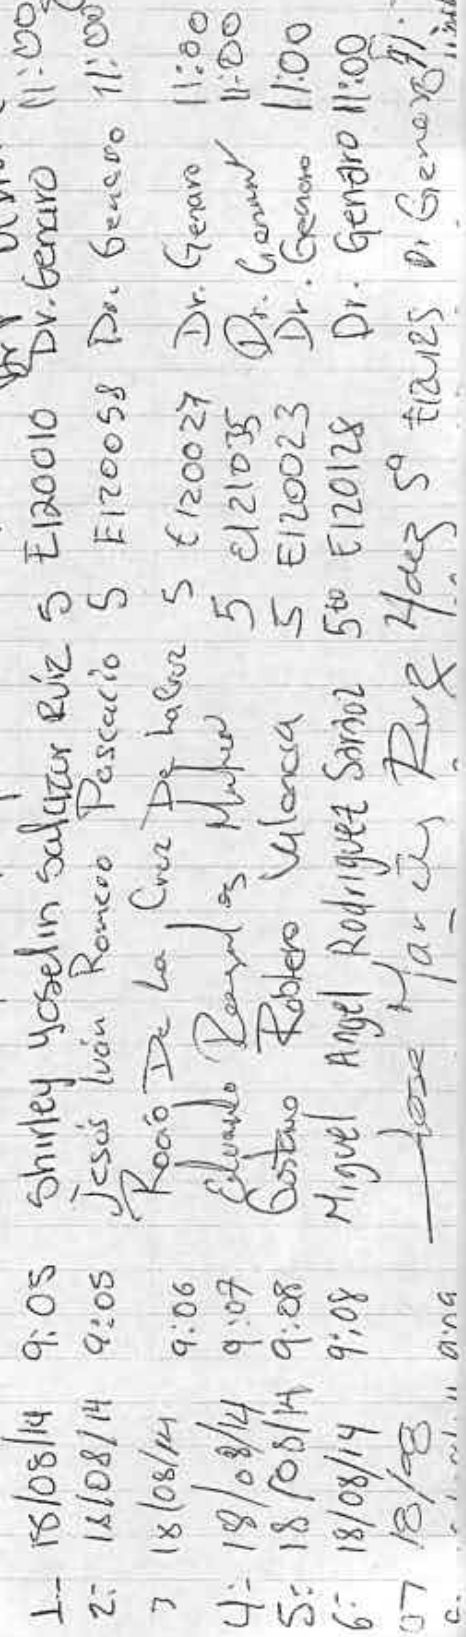 1- 18/08/14 9:05 Shirley Yoselin Salazar Ruíz 5 E120010 Dr. Genaro 11:00
2- 18/08/14 9:05 Jesús Iván Romero Pascacio 5 E120058 Dr. Genaro 11:00
18/08/14 9:06 Rocío De La Cruz De La Cruz 5 E120027 Dr. Genaro 11:00
4- 18/08/14 9:07 Eduardo 5 E121035 Dr. 11:00
5- 18/08/14 9:08 Gustavo Roblero Valencia 5 E120023 Dr. Genaro 11:00
6- 18/08/14 9:08 Miguel Angel Rodriguez 5to E120128 Dr. Genaro 11:00
07 Jose Ruz Dr Genaro